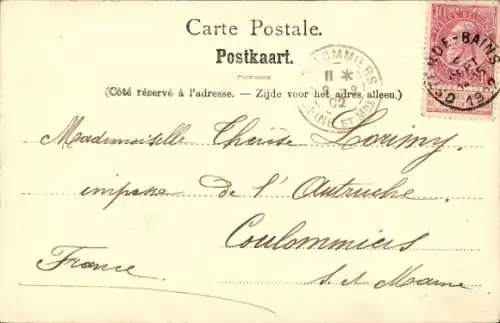 Carte Postale.
Postkaart.
(Côté réservé à l'adresse. — Zijde voor het adres alleen.)
COULOMMIERS
11 *
9 - 9
02
SEINE ET MNE
10
Mademoiselle Thérèse Lorimy
impasse de l'Autruche
Coulommiers
France S. et Marne